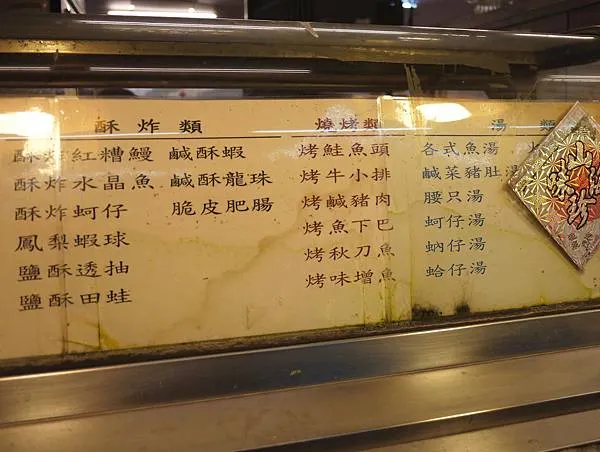 酥炸類
酥炸紅糟鰻
酥炸水晶魚
酥炸蚵仔
鳳梨蝦球
鹽酥透抽
鹽酥田蛙
鹹酥蝦
鹹酥龍珠
脆皮肥腸
燒烤類
烤鮭魚頭
烤牛小排
烤鹹豬肉
烤魚下巴
烤秋刀魚
烤味增魚
湯類
各式魚湯
鹹菜豬肚湯
腰只湯
蚵仔湯
蚋仔湯
蛤仔湯
山珍海味